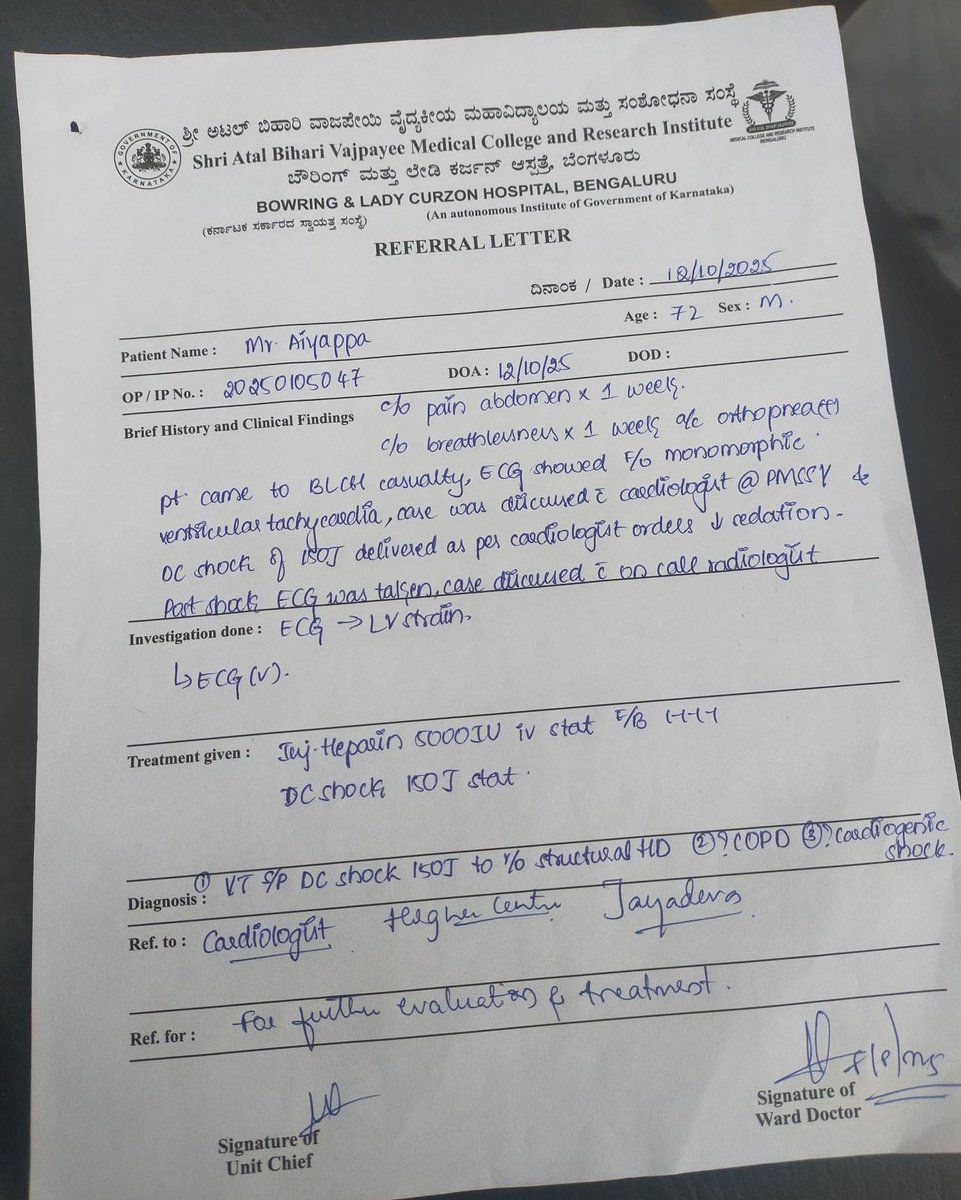 ಶ್ರೀ ಅಟಲ್ ಬಿಹಾರಿ ವಾಜಪೇಯಿ ವೈದ್ಯಕೀಯ ಮಹಾವಿದ್ಯಾಲಯ ಮತ್ತು ಸಂಶೋಧನಾ ಸಂಸ್ಥೆ
Shri Atal Bihari Vajpayee Medical College and Research Institute
ಬೌರಿಂಗ್ ಮತ್ತು ಲೇಡಿ ಕರ್ಜನ್ ಆಸ್ಪತ್ರೆ, ಬೆಂಗಳೂರು
BOWRING & LADY CURZON HOSPITAL, BENGALURU
(ಕರ್ನಾಟಕ ಸರ್ಕಾರದ ಸ್ವಾಯತ್ತ ಸಂಸ್ಥೆ) (An autonomous Institute of Government of Karnataka)
GOVERNMENT OF KARNATAKA
MEDICAL COLLEGE AND RESEARCH INSTITUTE
BENGALURU
REFERRAL LETTER
ದಿನಾಂಕ / Date : 12/10/2025
Age : 72 Sex : M.
Patient Name : Mr. Aiyappa
OP / IP No. : 20250105047 DOA : 12/10/25 DOD :
Brief History and Clinical Findings c/o pain abdomen x 1 week.
c/o breathlessness x 1 week a/c orthopnea(+)
pt came to BLCH casualty, ECG showed F/o monomorphic
ventricular tachycardia, case was discussed c̄ cardiologist @ PMSSY &
DC shock of 150J delivered as per cardiologist orders ↓ sedation.
Post shock ECG was taken, case discussed c̄ on call radiologist
Investigation done : ECG → LV strain.
↳ ECG (V).
Treatment given : Inj. Heparin 5000IU iv stat F/B 1-1-1
DC shock 150J stat.
Diagnosis : ① VT S/P DC shock 150J to r/o structural HD ② ? COPD ③ ? cardiogenic
shock.
Ref. to : Cardiologist Higher Centre Jayadeva
Ref. for : For further evaluation & treatment.
Signature of
Unit Chief
Signature of
Ward Doctor